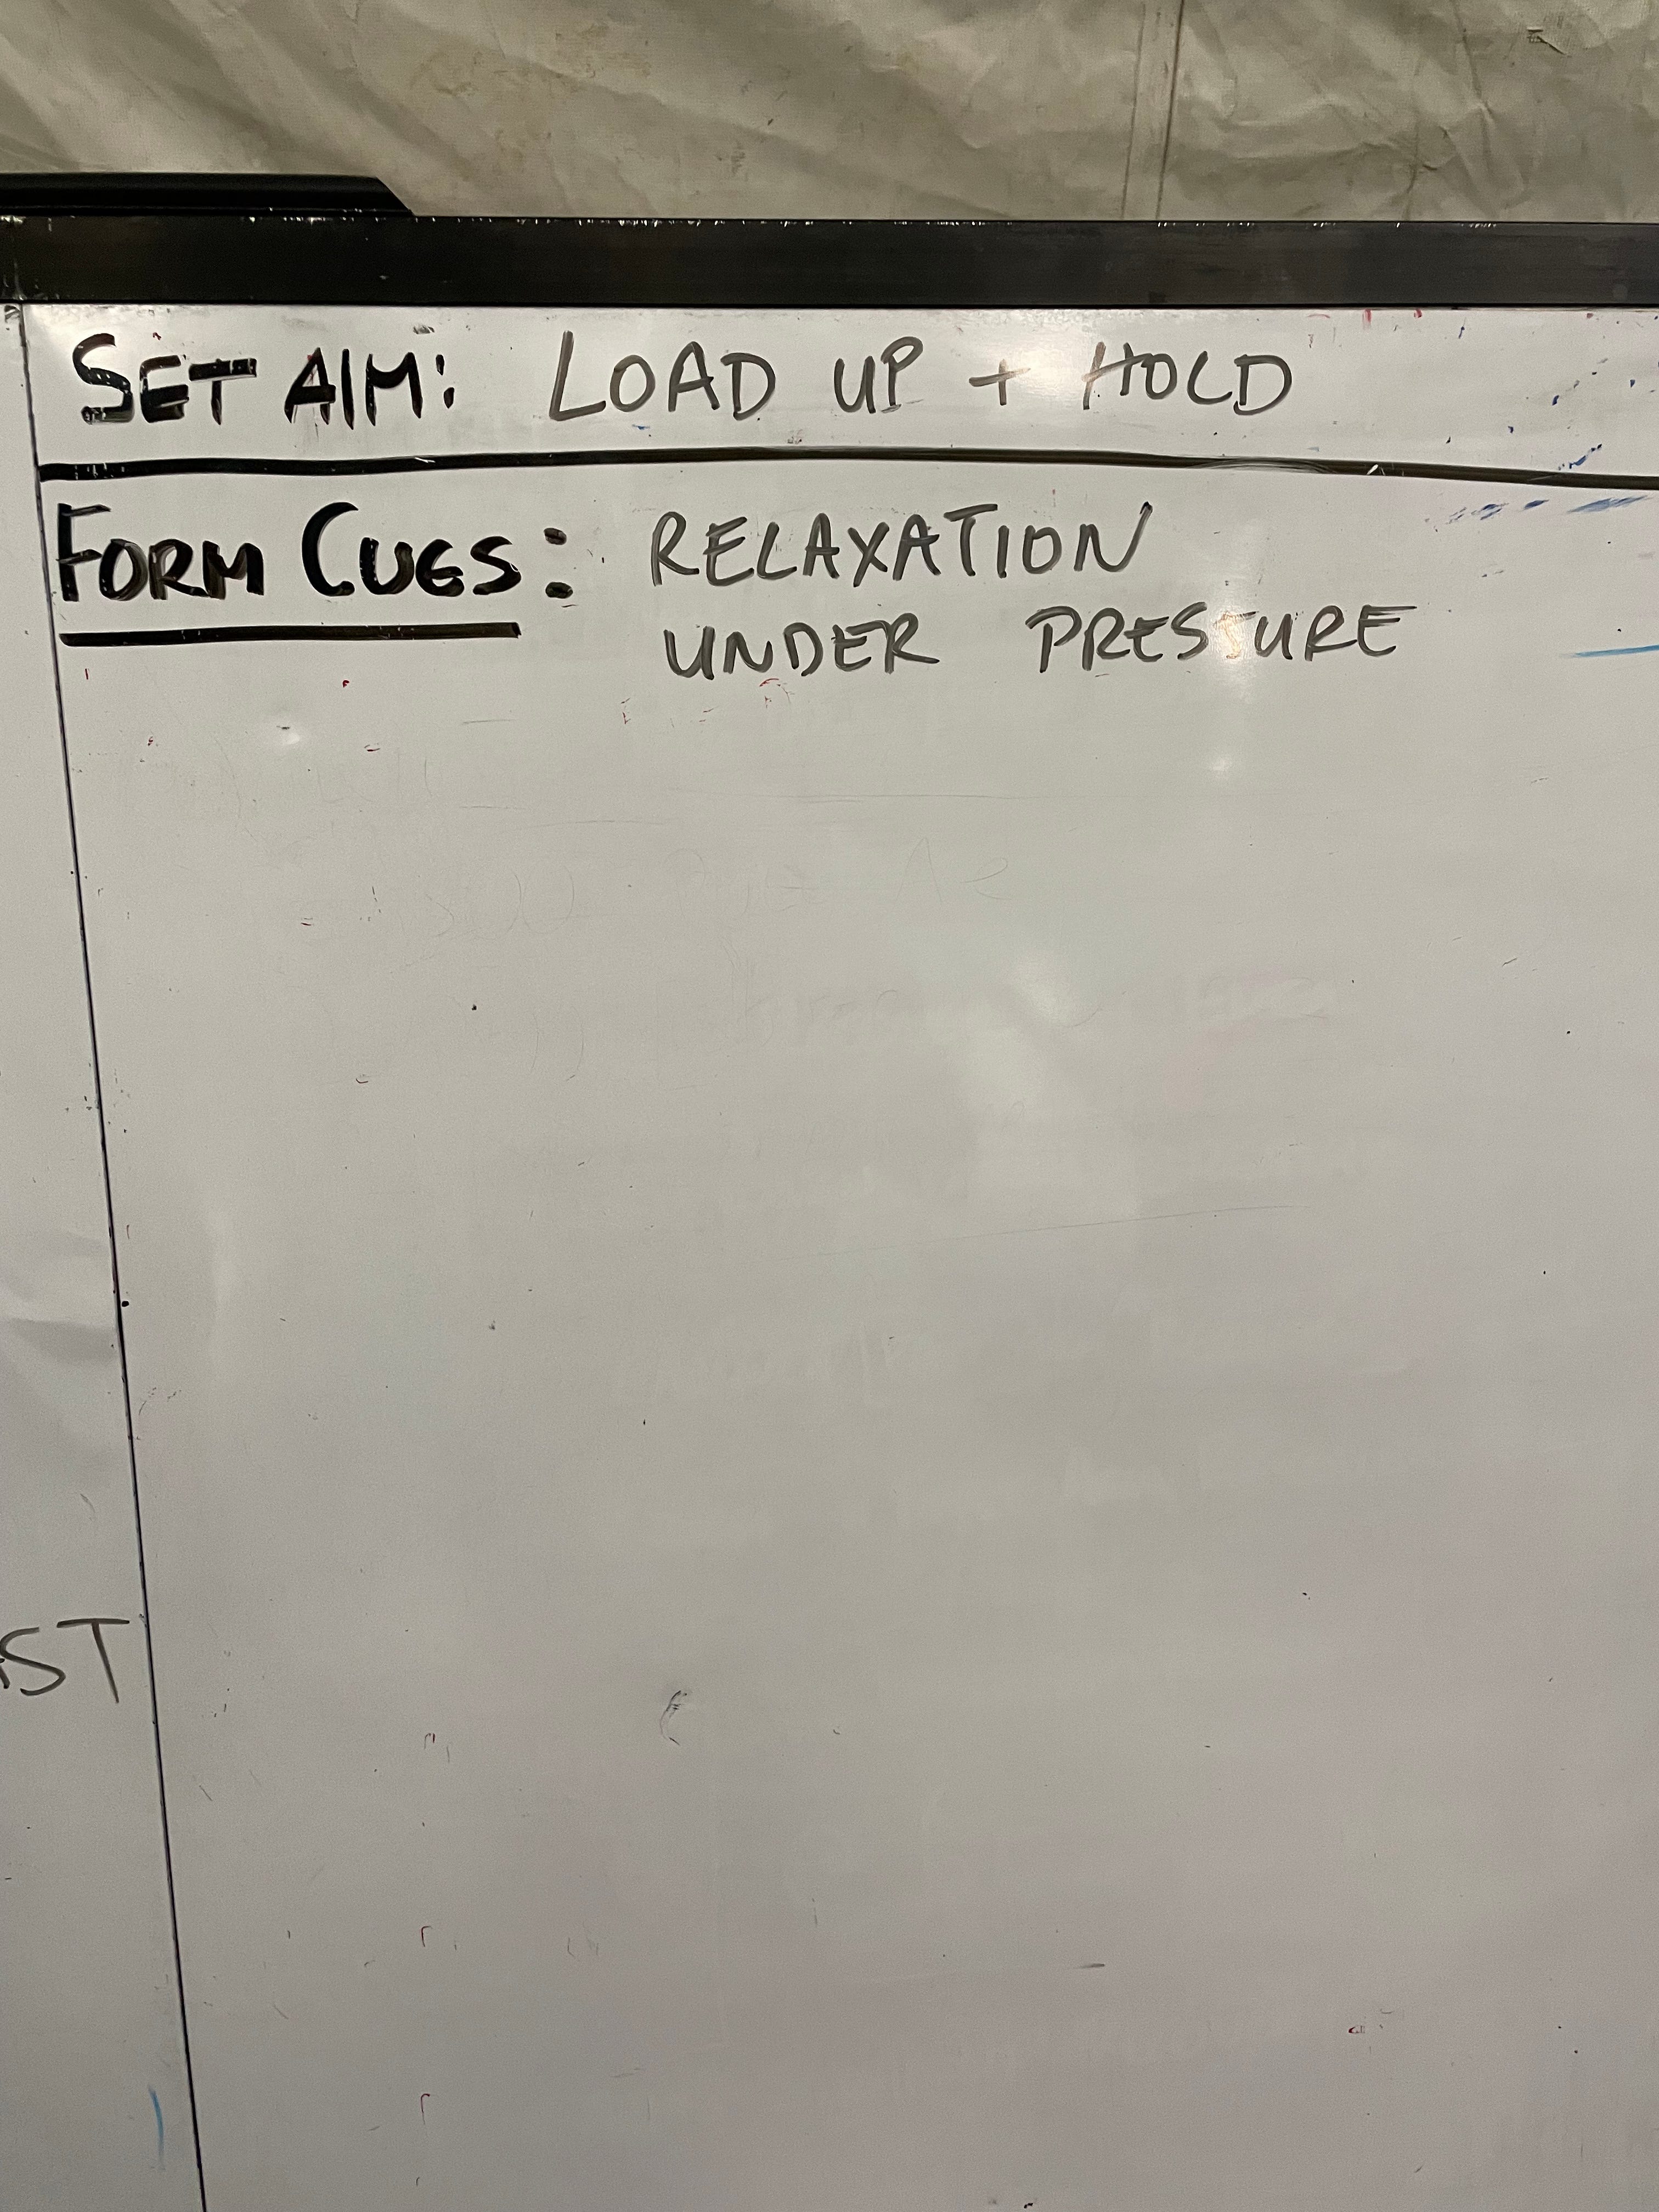 SET AIM: LOAD UP + HOLD
FORM CUES: RELAXATION
UNDER PRESSURE